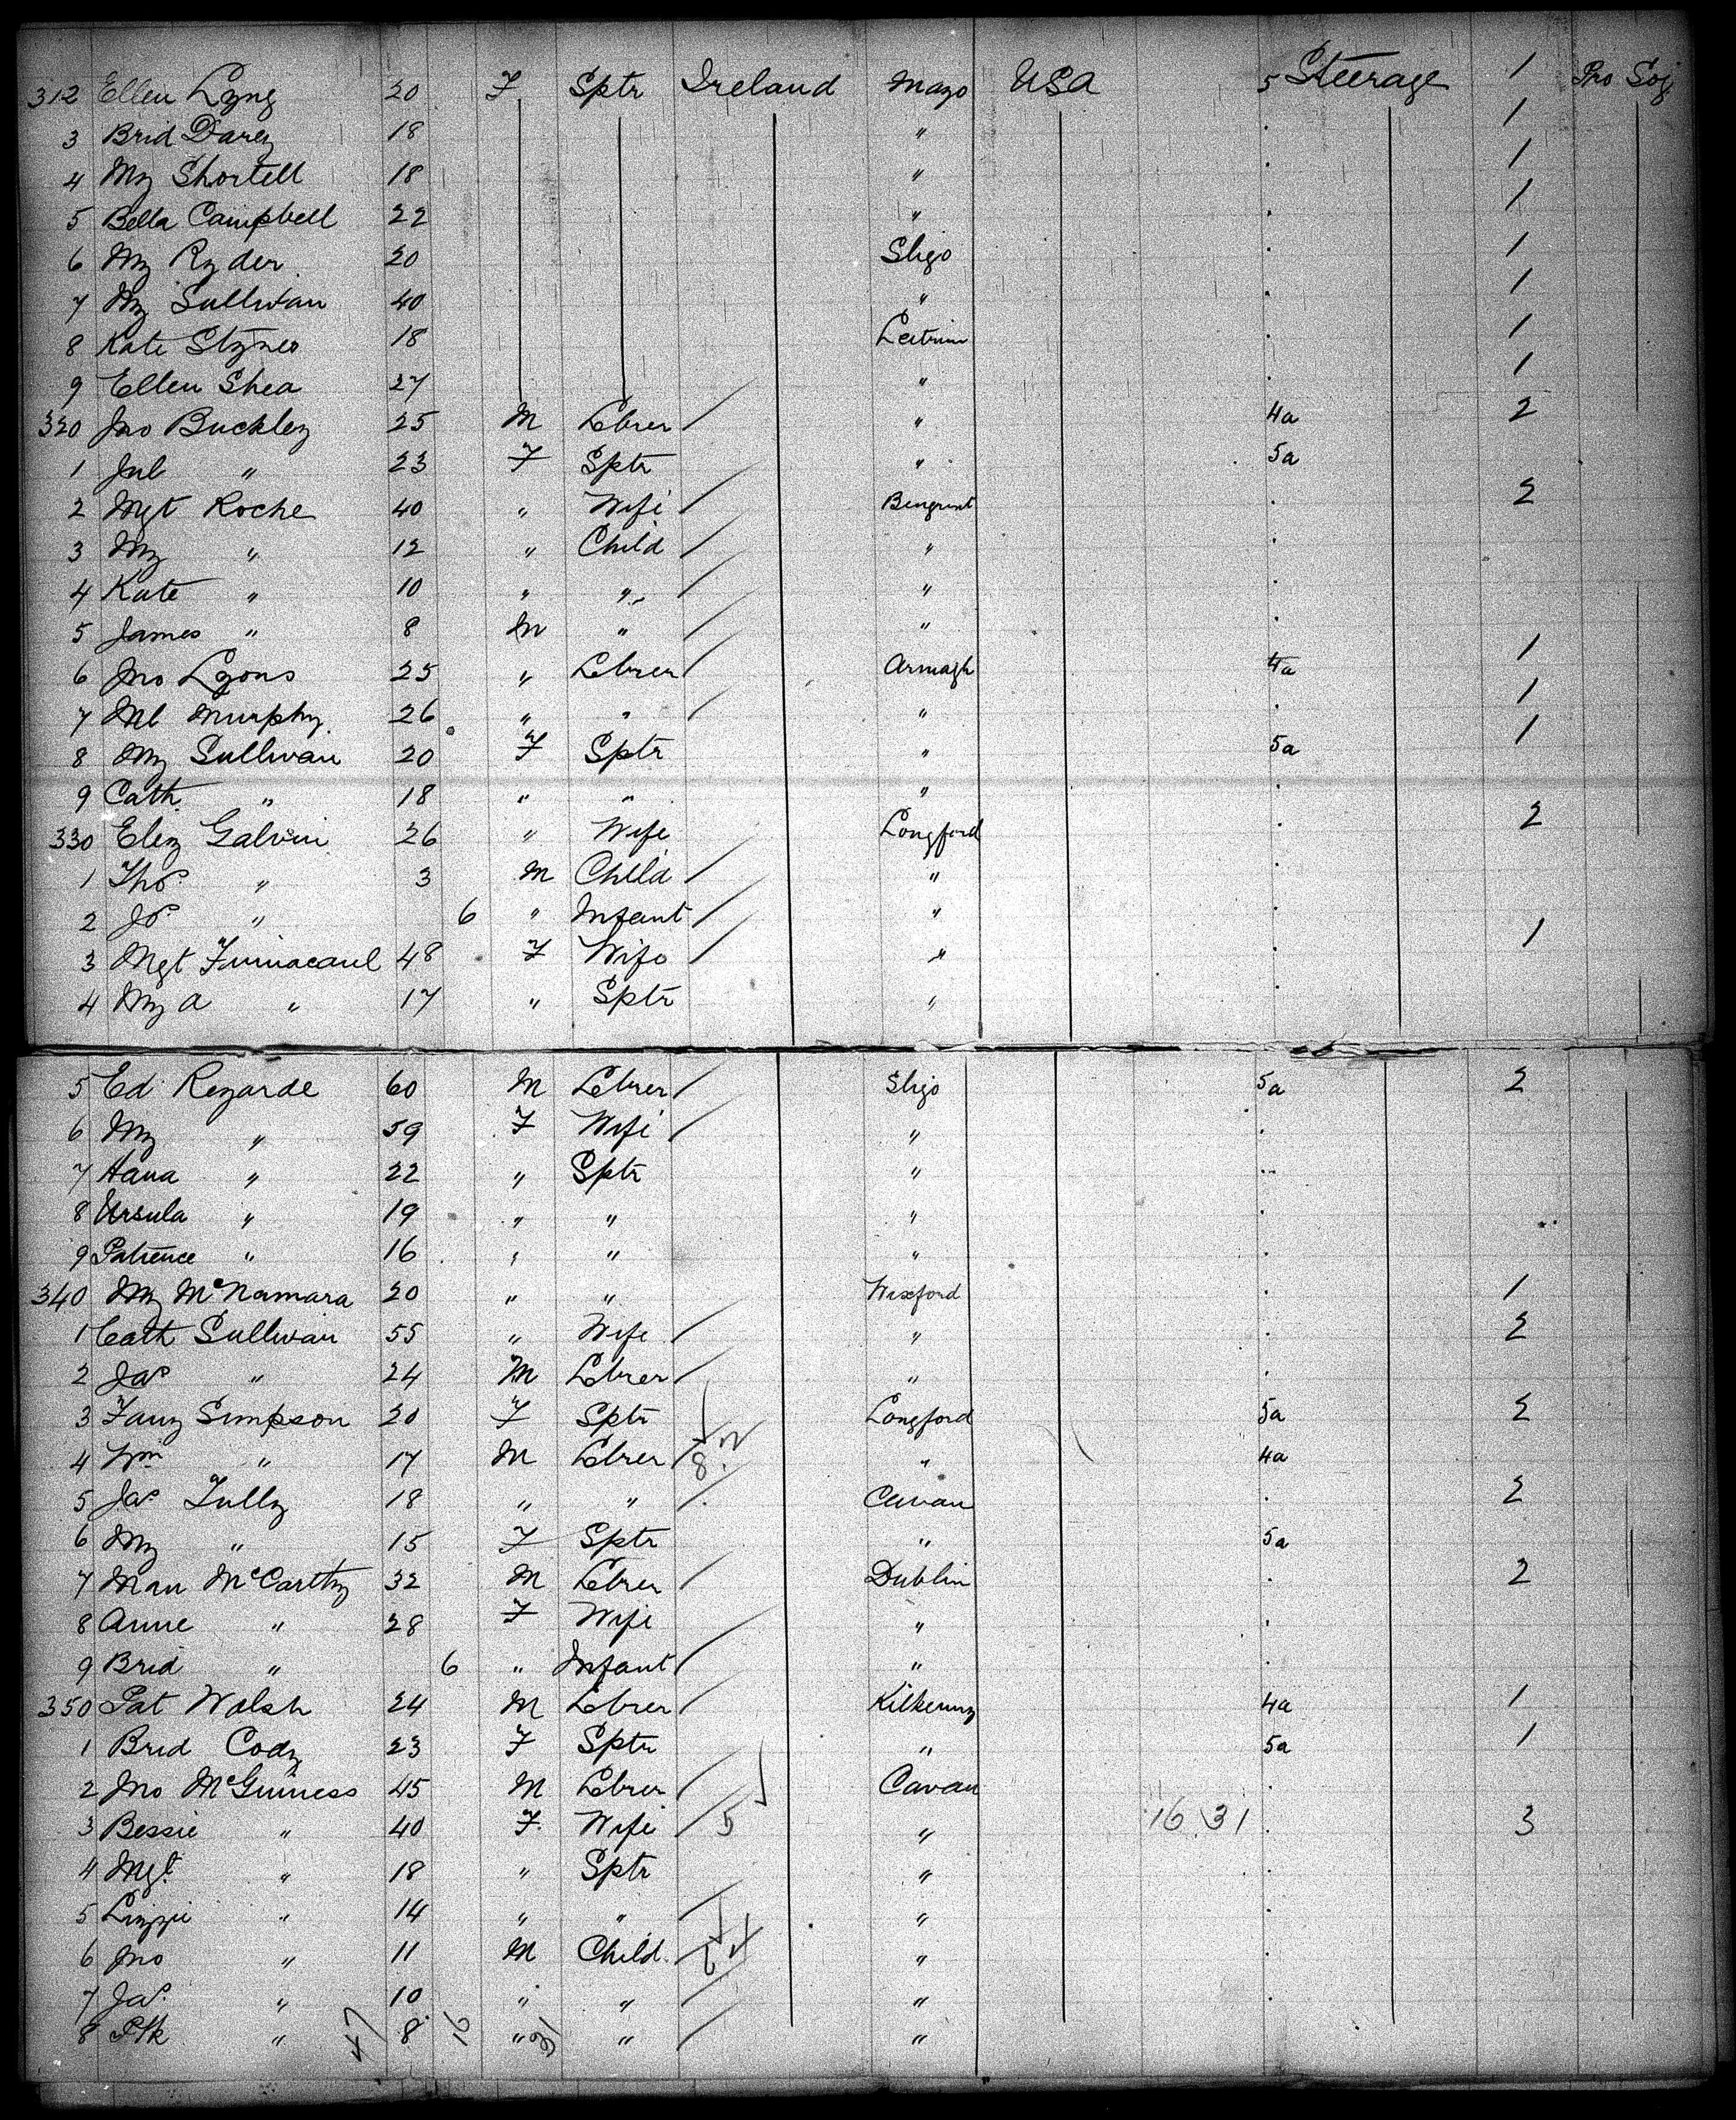 312 Ellen Lyng 20 F Sptr Ireland Mayo USA 5 Steerage 1 Pro Soj
3 Brid Darcy 18 " 1
4 My Shortell 18 " 1
5 Bella Campbell 22 " 1
6 My Ryder 20 Sligo 1
7 My Sullivan 40 " 1
8 Kate Stynes 18 Leitrim 1
9 Ellen Shea 27 " 1
320 Jno Buckley 25 M Lbrer / " 4a 2
1 Jul " 23 F Sptr " 5a
2 Mgt Roche 40 " Wife / 2
3 My " 12 " Child / "
4 Kate " 10 " " / "
5 James " 8 M " / "
6 Jno Lyons 25 " Lbrer / Armagh 4a 1
7 Ml Murphy 26 " " / " 1
8 My Sullivan 20 F Sptr " 5a 1
9 Cath " 18 " " "
330 Eliz Galvin 26 " Wife Longford 2
1 Thos " 3 M Child / "
2 Jos " 6 " Infant / "
3 Mgt 48 F Wife / " 1
4 My A " 17 " Sptr "
5 Ed Regarde 60 M Lbrer / Sligo 5a 2
6 My " 59 F Wife / "
7 Hana " 22 " Sptr "
8 Ursula " 19 " " "
9 Patience " 16 " " "
340 My McNamara 20 " " Wexford 1
1 Cath Sullivan 55 " Wife / " 2
2 Jas " 24 M Lbrer / "
3 Fany Simpson 20 F Sptr Longford 5a 2
4 Wm " 17 M Lbrer / 8 2 " 4a
5 Jas Tully 18 " " / Cavan 2
6 My " 15 F Sptr " 5a
7 Man McCarthy 32 M Lbrer / Dublin 2
8 Anne " 28 F Wife / "
9 Brid " 6 " Infant / "
350 Pat Walsh 24 M Lbrer / Kilkenny 4a 1
1 Brid Cody 23 F Sptr " 5a 1
2 Jno McGuiness 45 M Lbrer / Cavan
3 Bessie " 40 F Wife / 5 " 16 31 3
4 Mgt " 18 " Sptr "
5 Lizzie " 14 " " / "
6 Jno " 11 M Child / "
7 Jas " 10 " " / "
8 Ptk " 47 8 16 " 31 " / "